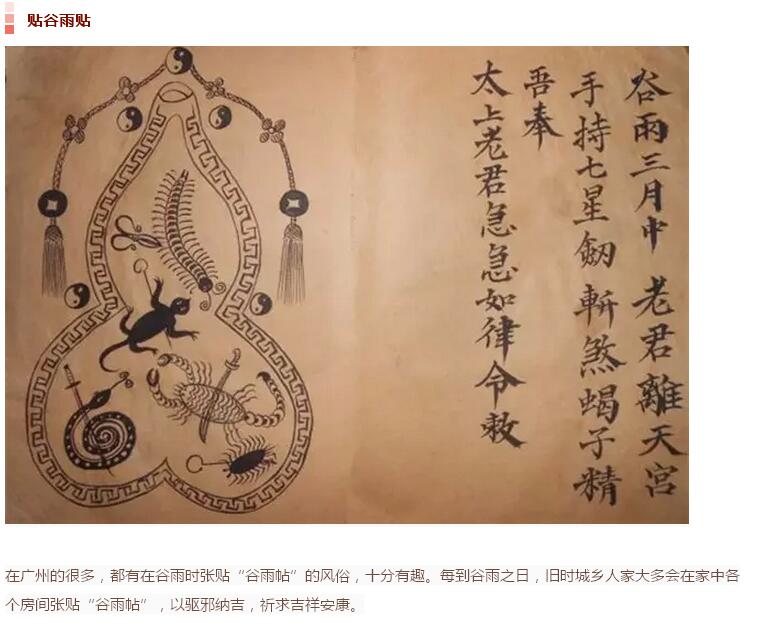 贴谷雨贴
谷雨三月中 老君離天宫
手持七星劔 斬煞蝎子精
吾奉
太上老君急急如律令敕
在广州的很多，都有在谷雨时张贴“谷雨帖”的风俗，十分有趣。每到谷雨之日，旧时城乡人家大多会在家中各
个房间张贴“谷雨帖”，以驱邪纳吉，祈求吉祥安康。